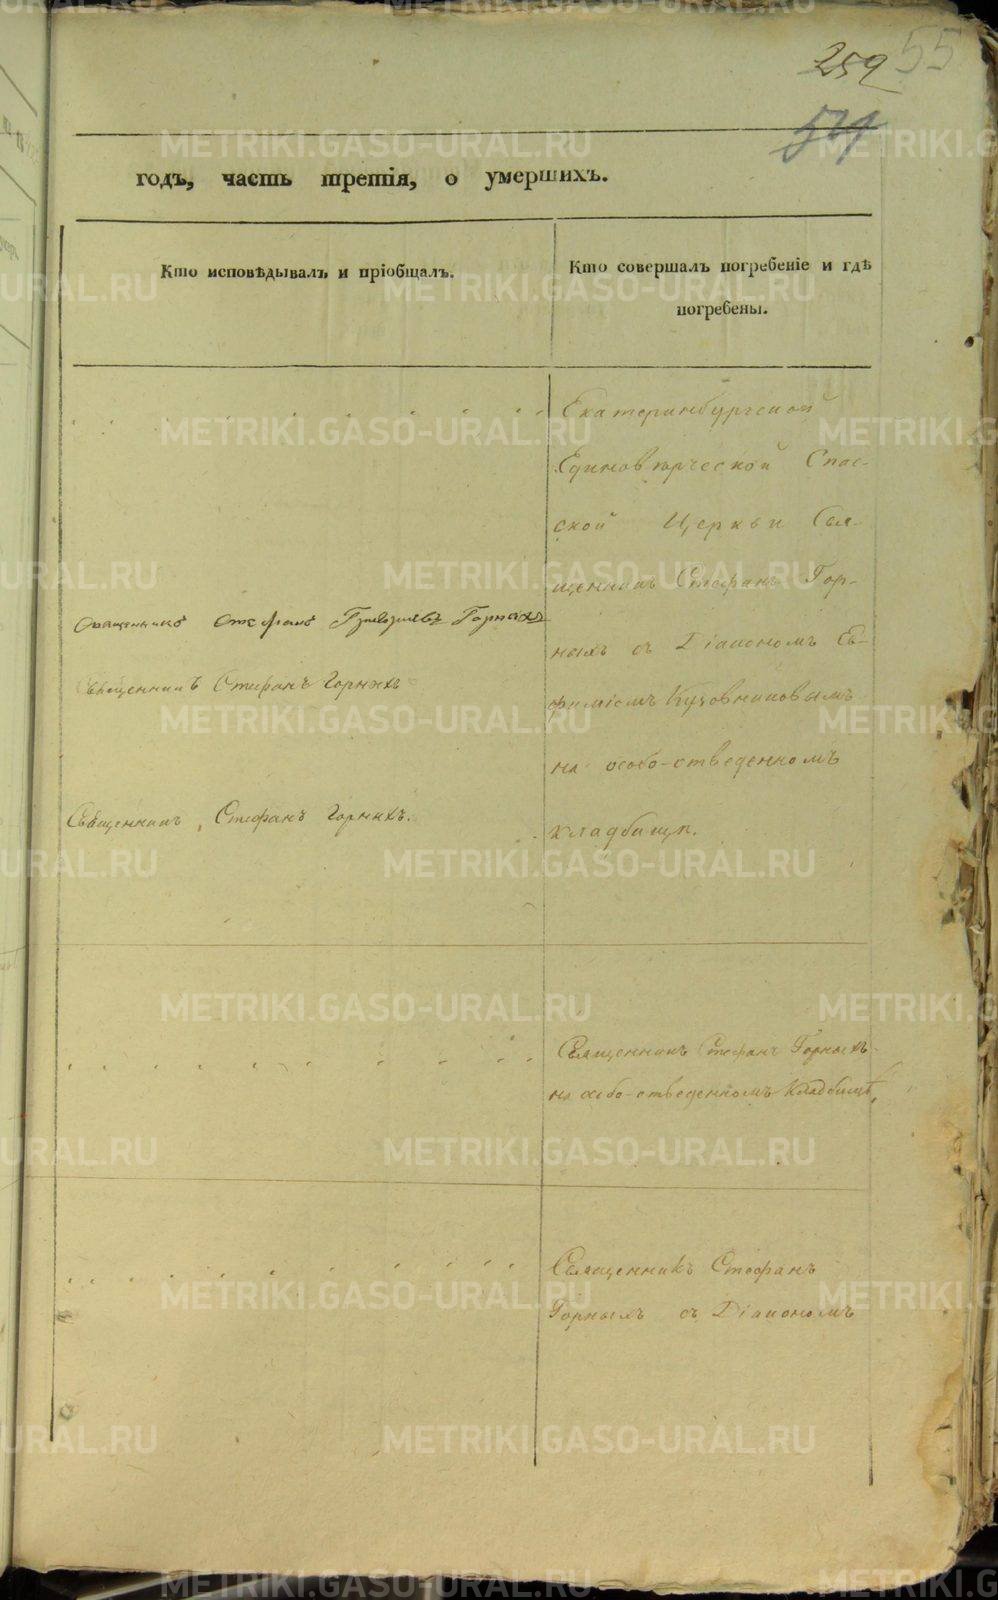 259 55
54
годъ, часть третія, о умершихъ.
Кто исповѣдывалъ и пріобщалъ.
Кто совершалъ погребеніе и гдѣ
погребены.
Екатеринбургской
Единовѣрческой Спас-
ской Церкви Свя-
щенникъ Стефанъ Гор-
ныхъ съ Діакономъ Ев-
фиміемъ Куховниковымъ
на особо-отведенномъ
кладбищѣ.
Священникъ Стефанъ Григорьевъ Горныхъ
Священникъ Стефанъ Горныхъ
Священникъ, Стефанъ Горныхъ.
Священникъ Стефанъ Горныхъ
на особо-отведенномъ Кладбищѣ,
Священникъ Стефанъ
Горныхъ съ Діакономъ
METRIKI.GASO-URAL.RU